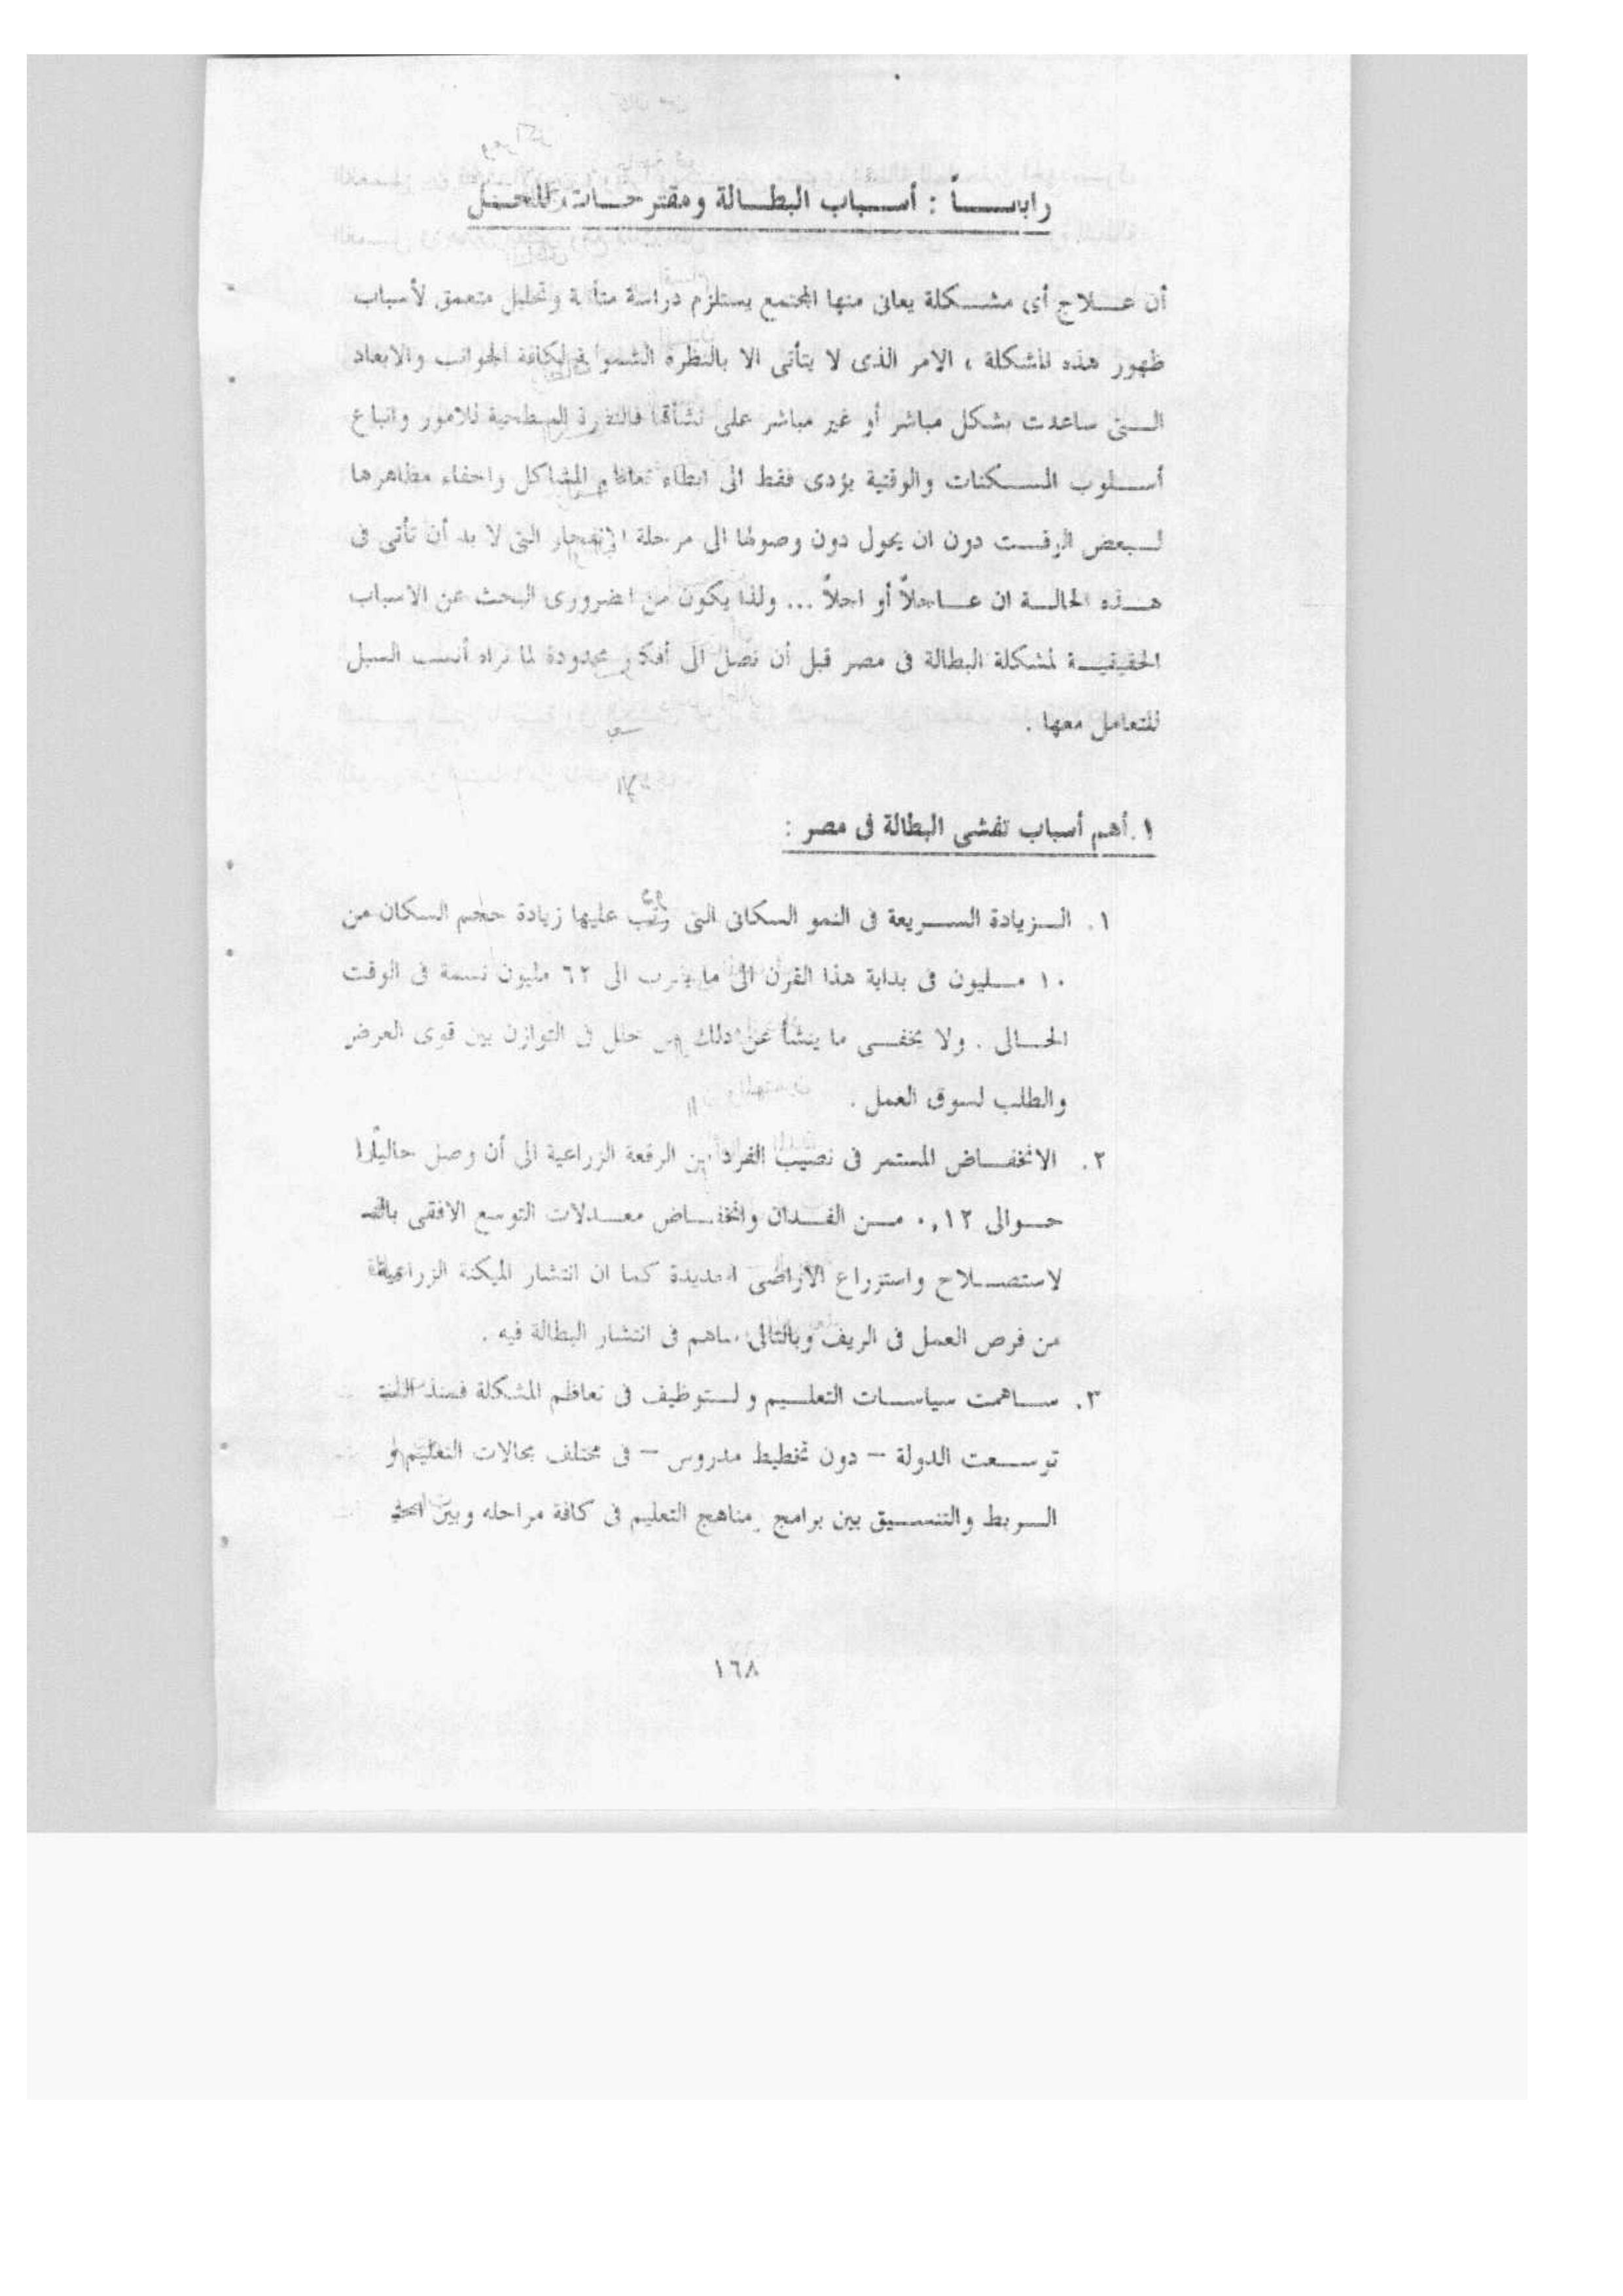 رابعــاً : أسـباب البطـالة ومقترحـات للحـل
أن عــلاج أى مشـكلة يعانى منها المجتمع يستلزم دراسة متأنية وتحليل متعمق لأسباب
ظهور هذه المشكلة ، الامر الذى لا يتأتى الا بالنظرة الشمولية لكافة الجوانب والابعاد
الـتى ساعدت بشكل مباشر أو غير مباشر على نشأتها فالنظرة السطحية للامور واتباع
أسـلوب المسـكنات والوقتية يؤدى فقط الى ابطاء تعاظم المشاكل واخفاء مظاهرها
لـبعض الوقـت دون ان يحول دون وصولها الى مرحلة الانفجار التى لا بد أن تأتى فى
هـذه الحالـة ان عـاجلاً أو اجلاً ... ولذا يكون من الضرورى البحث عن الاسباب
الحقيقيـة لمشكلة البطالة فى مصر قبل أن نصل الى أفكار محدودة لما نراه أنسب السبل
للتعامل معها .
١.أهم أسباب تفشى البطالة فى مصر :
١. الـزيادة السـريعة فى النمو السكانى التى ترتب عليها زيادة حجم السكان من
١٠ مـليون فى بداية هذا القرن الى ما يقرب الى ٦٢ مليون نسمة فى الوقت
الحـالى . ولا يخفـى ما ينشأ عن ذلك من خلل فى التوازن بين قوى العرض
والطلب لسوق العمل .
٢. الانخفـاض المستمر فى نصيب الفرد من الرقعة الزراعية الى أن وصل حالياً
حـوالى ٠,١٢ مـن الفـدان وانخفـاض معـدلات التوسع الافقى
لاستصـلاح واستزراع الاراضى الجديدة كما ان انتشار الميكنة الزراعية
من فرص العمل فى الريف وبالتالى ساهم فى انتشار البطالة فيه .
٣. سـاهمت سياسـات التعلـيم و لـتوظيف فى تعاظم المشكلة فمنذ
توسـعت الدولة – دون تخطيط مدروس – فى مختلف مجالات التعليم
الـربط والتنسـيق بين برامج ومناهج التعليم فى كافة مراحله وبين
١٦٨